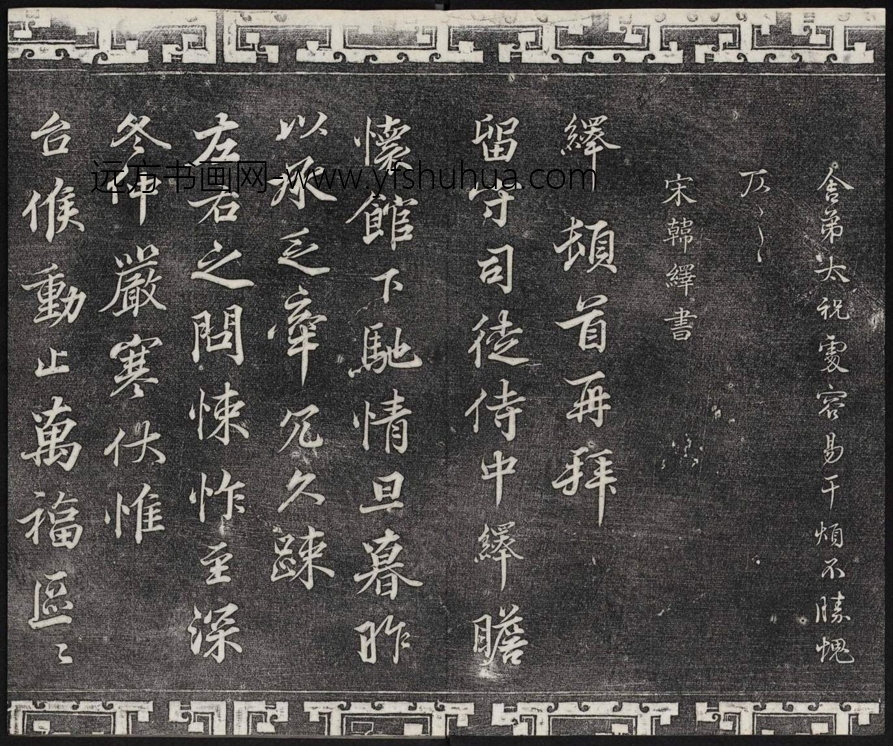 舍弟太祝處容易干煩不勝愧
宋韓繹書
繹頓首再拜
留守司徒侍中繹瞻
懷館下馳情旦暮昨
以承乏牽冗久疎
左右之問悚怍至深
冬仲嚴寒伏惟
台候動止萬福區〻
远方书画网-www.yfshuhua.com